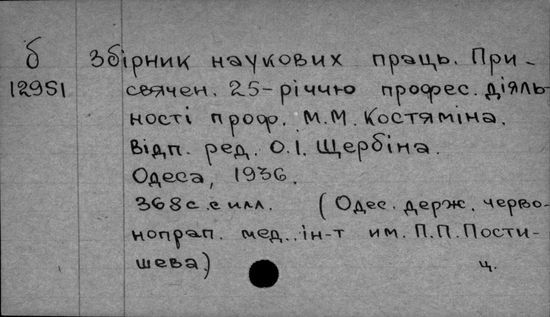 б Збірник наукових праць. При-
12951 свячен. 25-річчю профес. діяль-
ності проф. М.М. Костяміна.
Відп. ред. О.І. Щербіна.
Одеса, 1936.
368 с. с илл. (Одес. держ. черво-
нопрап. мед. ін-т им. П.П. Пости-
шева) ч.